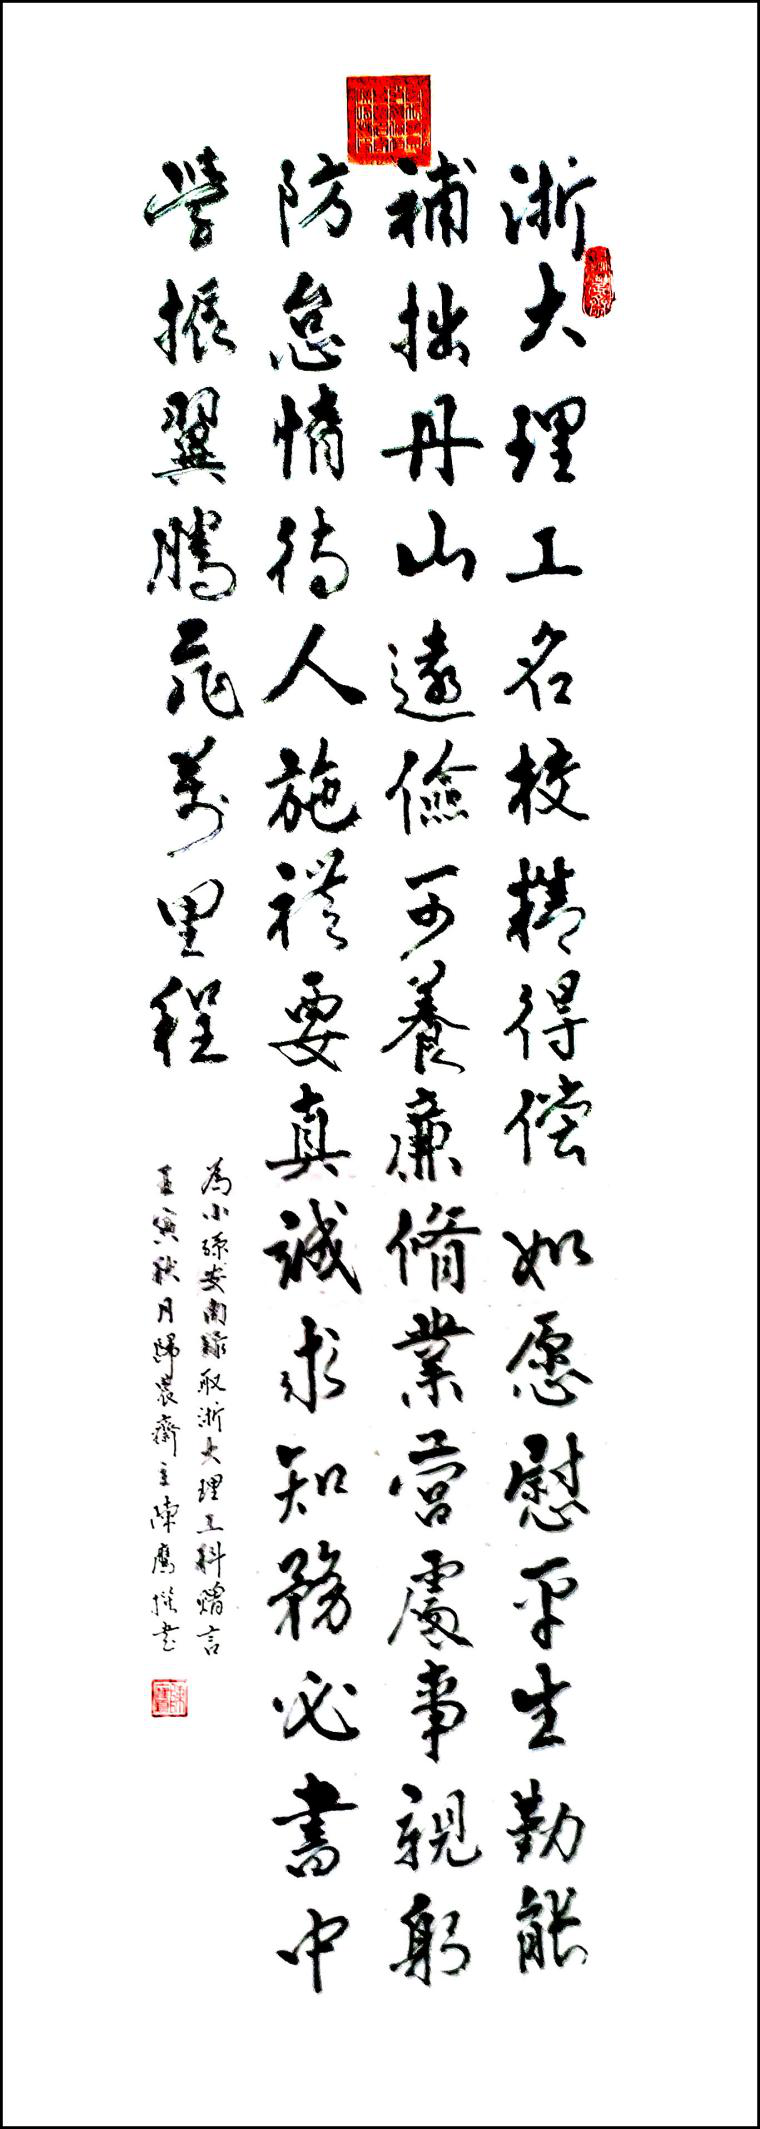 浙大理工名校精得偿如愿慰平生勤能
補拙丹山遠儉可養廉脩業营處事親躬
防怠惰待人施禮要真誠求知務必書中
學振翼騰飛萬里程
為小孫安南録取浙大理工科贈言
壬寅秋月歸農齋主陳鷹撰書